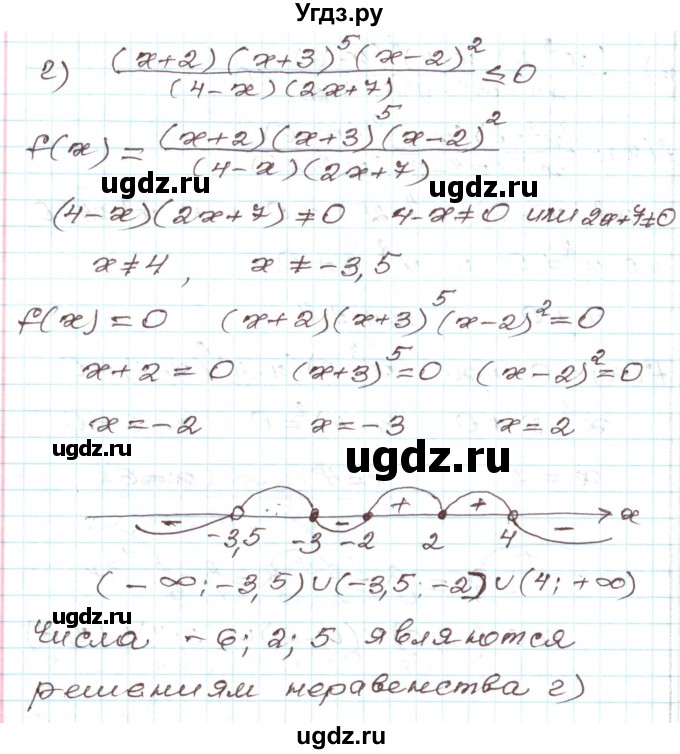 Угдз.ру
г) (x+2)(x+3)^5(x-2)^2 / (4-x)(2x+7) ≤ 0
f(x) = (x+2)(x+3)^5(x-2)^2 / (4-x)(2x+7)
ugdz.ru ugdz.ru
(4-x)(2x+7) ≠ 0 4-x ≠ 0 или 2x+7 ≠ 0
x ≠ 4, x ≠ -3,5
f(x) = 0 (x+2)(x+3)^5(x-2)^2 = 0
x+2 = 0 (x+3)^5 = 0 (x-2)^2 = 0
x = -2 x = -3 x = 2
ugdz.ru ugdz.ru
- - + + - x
-3,5 -3 -2 2 4
(-∞; -3,5) ∪ (-3,5; -2] ∪ (4; +∞)
ugdz.ru ugdz.ru
Числа -6; 2; 5 являются
решениям неравенства г)
ugdz.ru